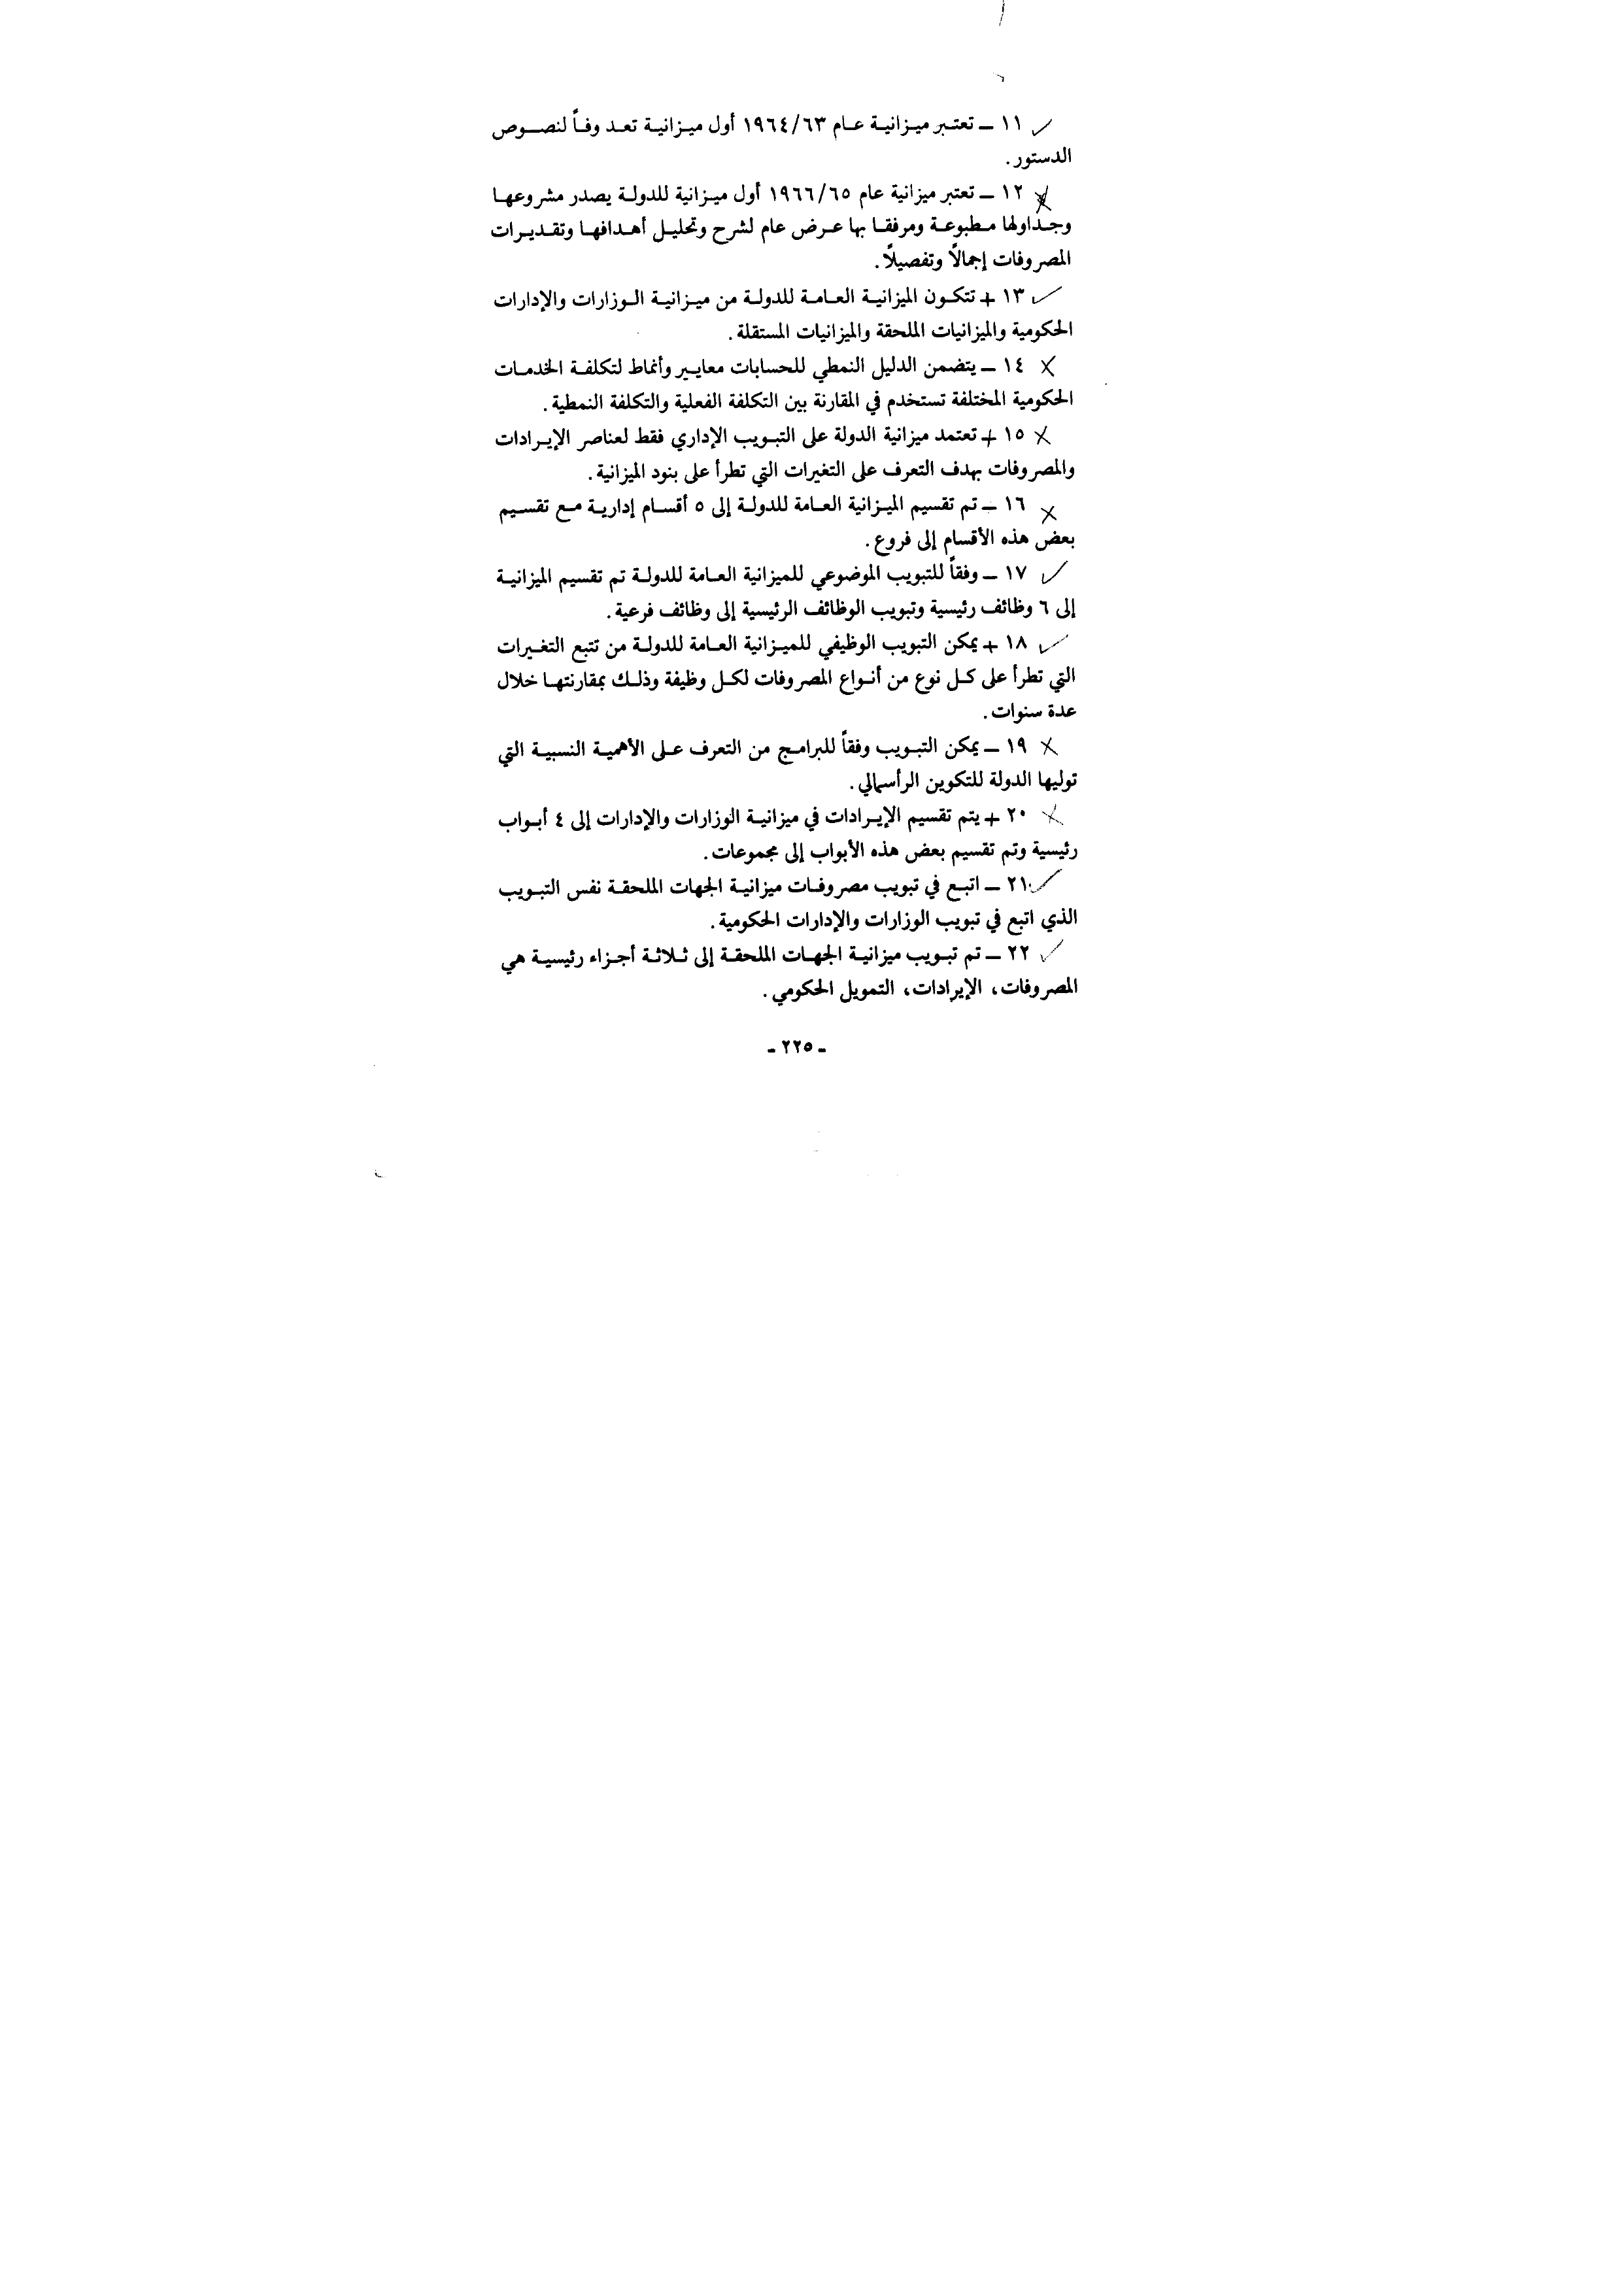 ✓ ١١ ــ تعتبر ميزانية عام ١٩٦٤/٦٣ أول ميزانية تعد وفاً لنصوص
الدستور.
× ١٢ ــ تعتبر ميزانية عام ١٩٦٦/٦٥ أول ميزانية للدولة يصدر مشروعها
وجداولها مطبوعة ومرفقا بها عرض عام لشرح وتحليل أهدافها وتقديرات
المصروفات إجمالاً وتفصيلاً.
✓ ١٣ + تتكون الميزانية العامة للدولة من ميزانية الوزارات والإدارات
الحكومية والميزانيات الملحقة والميزانيات المستقلة.
× ١٤ ــ يتضمن الدليل النمطي للحسابات معايير وأنماط لتكلفة الخدمات
الحكومية المختلفة تستخدم في المقارنة بين التكلفة الفعلية والتكلفة النمطية.
× ١٥ + تعتمد ميزانية الدولة على التبويب الإداري فقط لعناصر الإيرادات
والمصروفات بهدف التعرف على التغيرات التي تطرأ على بنود الميزانية.
× ١٦ ــ تم تقسيم الميزانية العامة للدولة إلى ٥ أقسام إدارية مع تقسيم
بعض هذه الأقسام إلى فروع.
✓ ١٧ ــ وفقاً للتبويب الموضوعي للميزانية العامة للدولة تم تقسيم الميزانية
إلى ٦ وظائف رئيسية وتبويب الوظائف الرئيسية إلى وظائف فرعية.
✓ ١٨ + يمكن التبويب الوظيفي للميزانية العامة للدولة من تتبع التغيرات
التي تطرأ على كل نوع من أنواع المصروفات لكل وظيفة وذلك بمقارنتها خلال
عدة سنوات.
× ١٩ ــ يمكن التبويب وفقاً للبرامج من التعرف على الأهمية النسبية التي
توليها الدولة للتكوين الرأسمالي.
× ٢٠ + يتم تقسيم الإيرادات في ميزانية الوزارات والإدارات إلى ٤ أبواب
رئيسية وتم تقسيم بعض هذه الأبواب إلى مجموعات.
✓ ٢١ ــ اتبع في تبويب مصروفات ميزانية الجهات الملحقة نفس التبويب
الذي اتبع في تبويب الوزارات والإدارات الحكومية.
✓ ٢٢ ــ تم تبويب ميزانية الجهات الملحقة إلى ثلاثة أجزاء رئيسية هي
المصروفات، الإيرادات، التمويل الحكومي.
ـ ٢٢٥ ـ